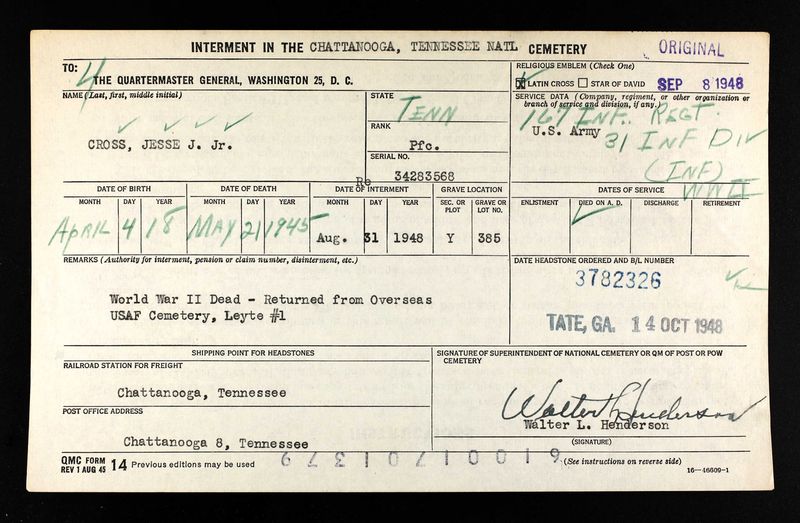 INTERMENT IN THE CHATTANOOGA, TENNESSEE NATL CEMETERY
ORIGINAL
TO:
4
THE QUARTERMASTER GENERAL, WASHINGTON 25, D. C.
RELIGIOUS EMBLEM (Check One)
LATIN CROSS STAR OF DAVID SEP 8 1948
NAME (Last, first, middle initial)
CROSS, JESSE J. Jr.
STATE
TENN
RANK
Pfc.
SERIAL NO.
34283568
SERVICE DATA (Company, regiment, or other organization or
branch of service and division, if any.)
167 INF. REGT.
U.S. Army
31 INF DIV
(INF)
WWII
DATE OF BIRTH
MONTH DAY YEAR
APRIL 4 18
DATE OF DEATH
MONTH DAY YEAR
MAY 21 1945
Re
DATE OF INTERMENT
MONTH DAY YEAR
Aug. 31 1948
GRAVE LOCATION
SEC. OR PLOT
GRAVE OR LOT NO.
Y 385
DATES OF SERVICE
ENLISTMENT DIED ON A. D. DISCHARGE RETIREMENT
REMARKS (Authority for interment, pension or claim number, disinterment, etc.)
World War II Dead - Returned from Overseas
USAF Cemetery, Leyte #1
DATE HEADSTONE ORDERED AND B/L NUMBER
3782326
TATE, GA. 14 OCT 1948
SHIPPING POINT FOR HEADSTONES
RAILROAD STATION FOR FREIGHT
Chattanooga, Tennessee
POST OFFICE ADDRESS
Chattanooga 8, Tennessee
SIGNATURE OF SUPERINTENDENT OF NATIONAL CEMETERY OR QM OF POST OR POW
CEMETERY
Walter L. Henderson
Walter L. Henderson
(SIGNATURE)
QMC FORM
REV 1 AUG 45 14 Previous editions may be used
610017101379
(See instructions on reverse side)
16—46609-1